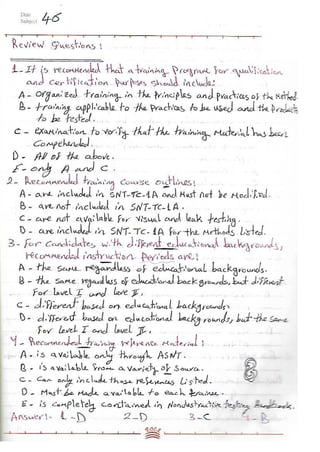 Date
Subject
46
Review Questions :
1- It is recommended that a training Program for qualification
and certification Purposes should include:
A - Organized training in the Principles and Practices of the Method.
B - training applicable to the Practices to be used and the Products
to be tested.
C - Examination to verify that the training Material has been
Comprehended.
D - All of the above.
E - only A and C.
2 - Recommended training Course outlines:
A - are included in SNT-TC-1A and Must not be Modified.
B - are not included in SNT-TC-1A.
C - are not available for visual and leak testing.
D - are included in SNT-TC-1A for the Methods Listed.
3 - for Candidates with different educational backgrounds,
recommended instruction Periods are:
A - the same regardless of educational backgrounds.
B - the same regardless of educational backgrounds, but different
for Level I and Level II.
C - different based on educational backgrounds.
D - different based on educational backgrounds, but the same
for Level I and Level II.
4 - Recommended training reference Material :
A - is available only through ASNT.
B - is available from a variety of Source.
C - Can only include those references Listed.
D - Must be Made available to each trainee.
E - is Completely contained in Nondestructive testing Handbook.
Answer: 1-D 2-D 3-C 4-B